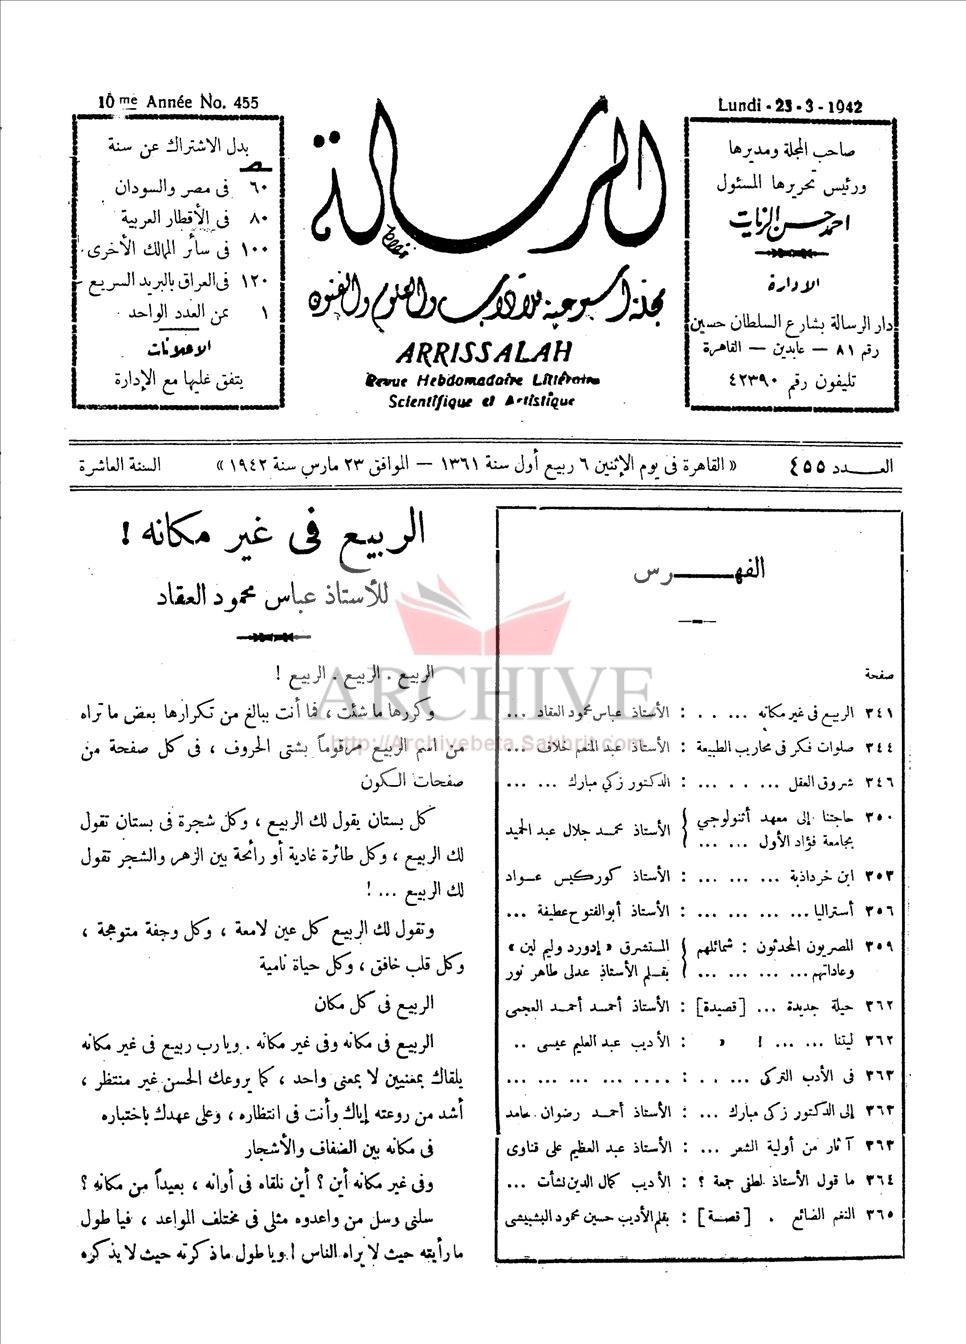 10me Année No. 455
Lundi - 23 - 3 - 1942
بدل الاشتراك عن سنة
٦٠ فى مصر والسودان
٨٠ فى الأقطار العربية
١٠٠ فى سائر الممالك الأخرى
١٢٠ فى العراق بالبريد السريع
١ ثمن العدد الواحد
الاعلانات
يتفق عليها مع الإدارة
الرسالة
مجلة أسبوعية للآداب والعلوم والفنون
ARRISSALAH
Revue Hebdomadaire Littéraire
Scientifique et Artistique
صاحب المجلة ومديرها
ورئيس تحريرها المسئول
احمد حسن الزيات
الادارة
دار الرسالة بشارع السلطان حسين
رقم ٨١ — عابدين — القاهرة
تليفون رقم ٤٢٣٩٠
العـــدد ٤٥٥
« القاهرة فى يوم الإثنين ٦ ربيع أول سنة ١٣٦١ — الموافق ٢٣ مارس سنة ١٩٤٢ »
السنة العاشرة
الفهـــرس
صفحة
٣٤١ الربيع فى غير مكانه ... . . : الأستاذ عباس محمود العقاد ...
٣٤٤ صلوات فكر فى محاريب الطبيعة : الأستاذ عبد المنعم خلاف ...
٣٤٦ شروق العقل ... . ... ... : الدكتور زكي مبارك ... ...
٣٥٠ حاجتنا إلى معهد أثنولوجي
بجامعة فؤاد الأول ... ...
} الأستاذ محمد جلال عبد الحميد
٣٥٣ ابن خرداذبة ... ... ... : الأستاذ كوركيس عواد
٣٥٦ أستراليا ... ... ... ... : الأستاذ أبو الفتوح عطيفة ...
٣٥٩ المصريون المحدثون : شمائلهم
وعاداتهم ... ... ... ...
} المستشرق « إدورد وليم لين »
بقلم الأستاذ عدلى طاهر نور
٣٦٢ حيلة جديدة ... [قصيدة] : الأستاذ أحمد أحمد العجمى
٣٦٢ ليتنا ... ... ! » : الأديب عبد العليم عيسى ..
٣٦٣ فى الأدب التركى ... . . : ... ... ... ...
٣٦٣ إلى الدكتور زكى مبارك ... : الأستاذ أحمد رضوان حامد
٣٦٣ آثار من أولية الشعر ... : الأستاذ عبد العظيم على قناوى
٣٦٤ ما قول الأستاذ لطفى جمعة ؟ : الأديب كمال الدين نشأت ...
٣٦٥ النغم الضائع . [قصة] : بقلم الأديب حسين محمود البشبيشى
الربيع فى غير مكانه !
للأستاذ عباس محمود العقاد
الربيع . الربيع . الربيع !
وكررها ما شئت ، فما أنت ببالغ من تكرارها بعض ما تراه
من اسم الربيع مرقوماً بشتى الحروف ، فى كل صفحة من
صفحات الكون
كل بستان يقول لك الربيع ، وكل شجرة فى بستان تقول
لك الربيع ، وكل طائرة غادية أو رائحة بين الزهر والشجر تقول
لك الربيع ... !
وتقول لك الربيع كل عين لامعة ، وكل وجفة متوهجة ،
وكل قلب خافق ، وكل حياة نامية
الربيع فى كل مكان
الربيع فى مكانه وفى غير مكانه . ويا رب ربيع فى غير مكانه
يلقاك بمعنيين لا بمعنى واحد ، كما يروعك الحسن غير منتظر ،
أشد من روعته إياك وأنت فى انتظاره ، وعلى عهدك باختباره
فى مكانه بين الضفاف والأشجار
وفى غير مكانه أين ؟ أين نلقاه فى أوانه ، بعيداً من مكانه ؟
سلنى وسل من واعدوه مثلى فى مختلف المواعد ، فيا طول
ما رأيته حيث لا يراه الناس ! ويا طول ما ذكرته حيث لا يذكره
ARCHIVE
http://Archivebeta.Sakhrit.com